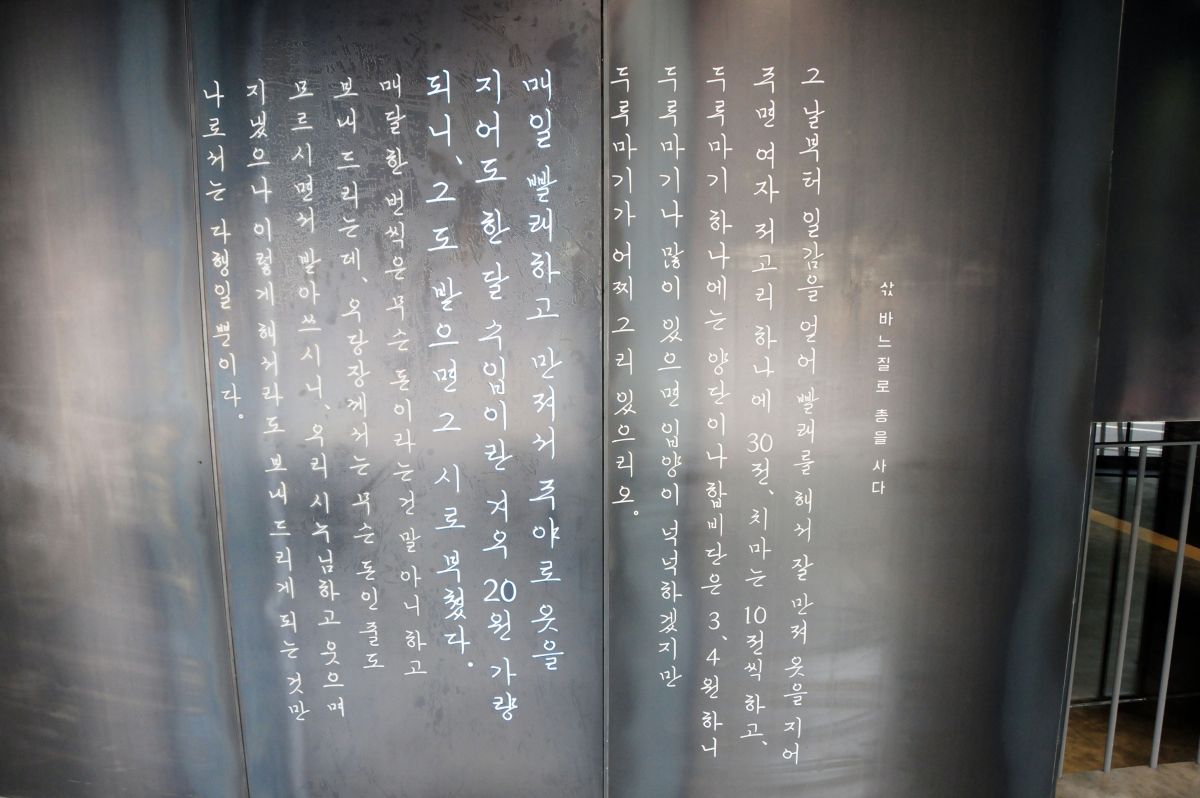 삯바느질로 총을 사다
그날부터 일감을 얻어 빨래를 해서 잘 만져 옷을 지어
주면 여자 저고리 하나에 30전, 치마는 10전씩 하고,
두루마기 하나에는 양단이나 합비단은 3, 4원 하니
두루마기나 많이 있으면 입양이 넉넉하겠지만
두루마기가 어찌 그리 있으리오.
매일 빨래하고 만져서 주야로 옷을
지어도 한 달 수입이란 겨우 20원 가량
되니, 그도 받으면 그 시로 부쳤다.
매달 한 번씩은 무슨 돈이라는 건 말 아니하고
보내 드리는데, 우당장께서는 무슨 돈인 줄도
모르시면서 받아쓰시니, 우리 시누님하고 웃으며
지냈으나 이렇게 해서라도 보내드리게 되는 것만
나로서는 다행일 뿐이다.